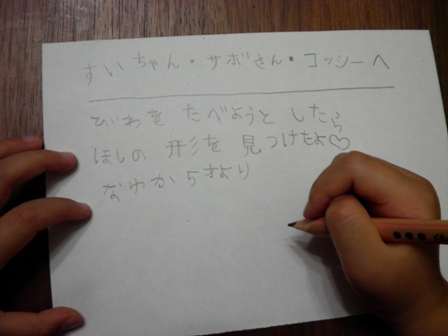 すいちゃん・サボさん・コッシーへ
びわを たべようと したら
ほしの 形を 見つけたよ♡
なゆか 5才より